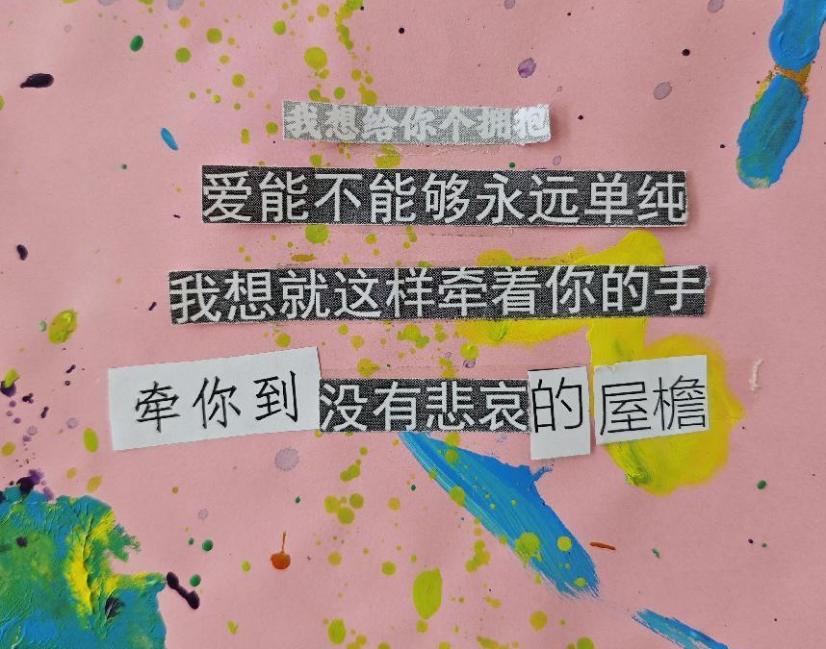 我想给你个拥抱
爱能不能够永远单纯
我想就这样牵着你的手
牵你到没有悲哀的屋檐